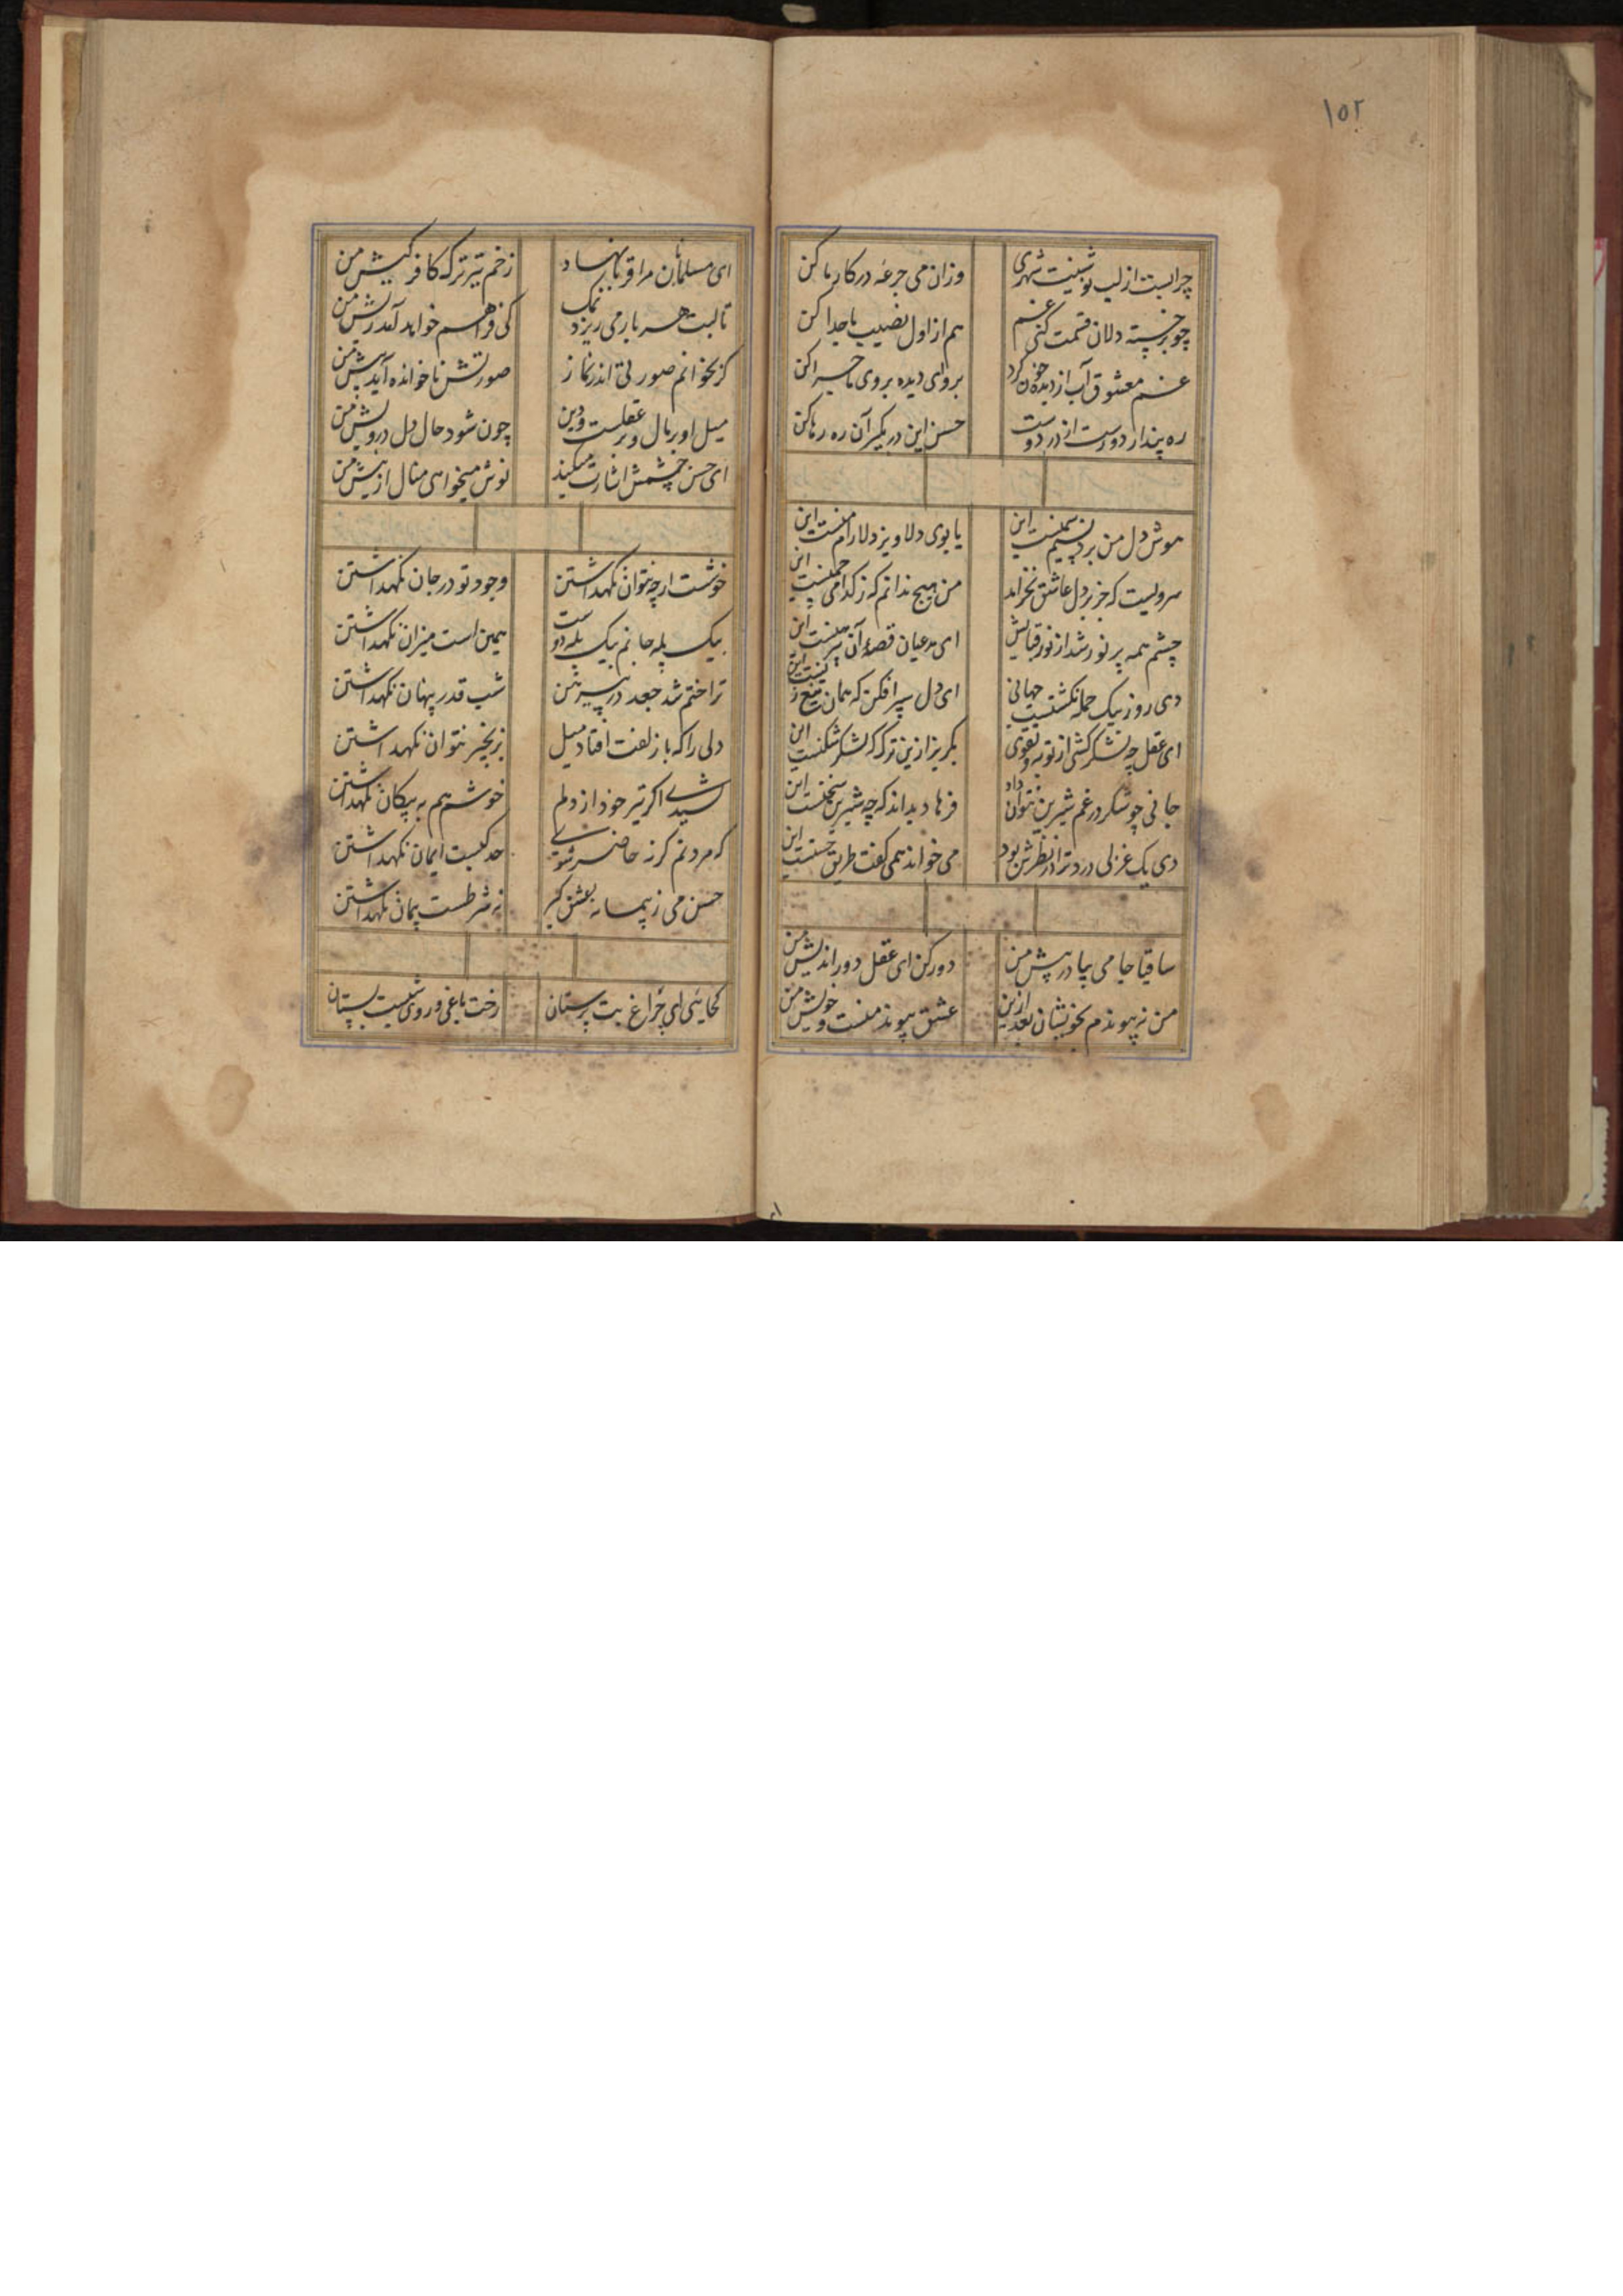 ۱۵۲
چو بر خسته دلان قسمت کنی غم
هم از اول نصیب ما جدا کن
وزان می جرعه در کار ما کن
غم معشوق آب از دیده خون کرد
برو ای دیده بروی ماجرا کن
ره پندار دورست از در دوست
حسن این در بگیر آن ره رها کن
هوش دل من برد نسیم سمنست این
یا بوی دلاویز دلارام منست این
سرویست که جز بر دل عاشق نخرامد
من هیچ ندانم که ز کدامی چمنست این
چشم همه پر نور شد از نور قبایش
ای مدعیان قصه آن پیرهنست این
دی روز بیک حمله بکشتست جهانی
ای دل سپر افکن که همان تیغ زنست این
ای عقل چه لشکر کشی از توبه و تقوی
بگریز ازین ترک که لشکر شکنست این
جانی چو شکر در غم شیرین نتوان داد
فرهاد بداند که چه شیرین سخنست این
دی یک غزلی درد ترا در نظرش بود
می خواند همی گفت طریق حسنست این
ساقیا جامی بیا در پیش من
دور کن ای عقل دور اندیش من
من نه پیوندم بخویشان بعد ازین
عشق پیوند منست و خویش من
ای مسلمانان مرا قربان نهاد
زخم تیر ترک کافر کیش من
تا لبت هر بار می ریزد نمک
کی فراهم خواهد آمد ریش من
گر بخوانم صورتی اندر نماز
صورتش ناخوانده آید پیش من
میل او بر مال و بر عقلست و دین
چون شود حال دل درویش من
ای حسن چشمش اشارت میکند
نوش میخواهی منال از نیش من
خوشست ارچه نتوان نگهداشتن
وجود تو در جان نگهداشتن
بیک پله جانم بیک پله دوست
همین است میزان نگهداشتن
ترا ختم شد جعد در پیرهن
شب قدر پنهان نگهداشتن
دلی را که با زلفت افتاد میل
بزنجیر نتوان نگهداشتن
اگر تیر خود از دلم
خوشم هم به پیکان نگهداشتن
که مردنم گرنه حاضر شوی
حد کیست ایمان نگهداشتن
حسن می ز پیمانه عشق گیر
نه شرطست پیمان نگهداشتن
کجایی ای چراغ بت پرستان
رخت باغی و روی تست بستان